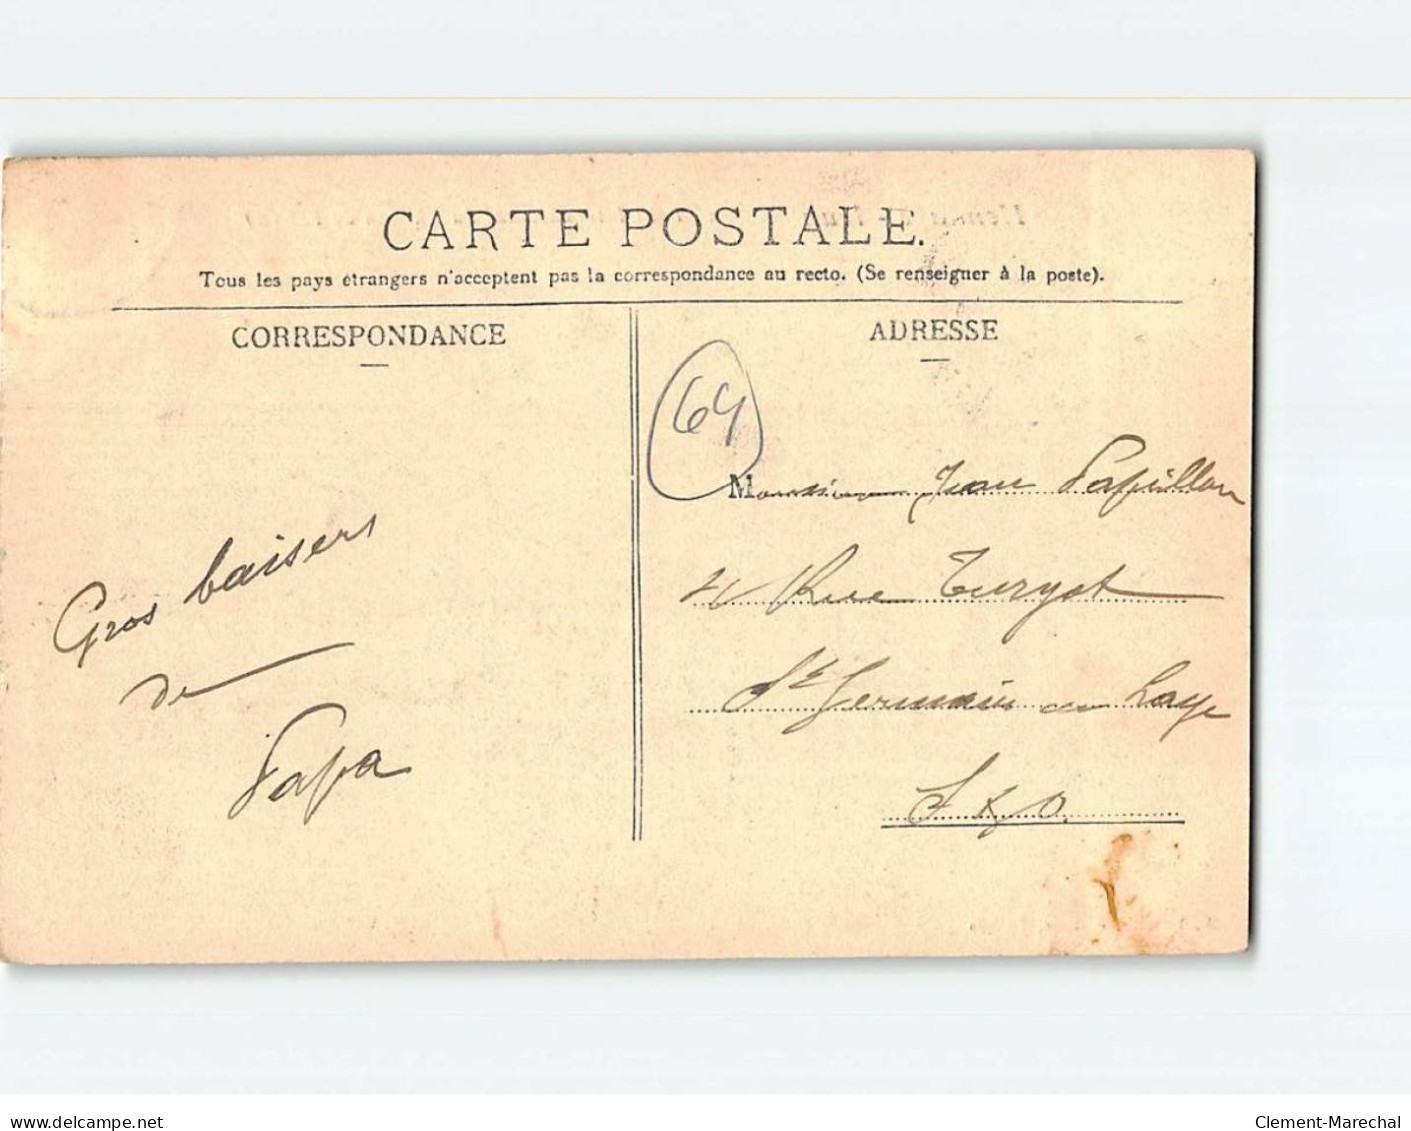 CARTE POSTALE.
Tous les pays étrangers n'acceptent pas la correspondance au recto. (Se renseigner à la poste).
CORRESPONDANCE
ADRESSE
64
Gros baisers
de
Papa
Monsieur Jean Papillon
Rue Turgot
St Germain en Laye
S & O.
www.delcampe.net
Clement-Marechal